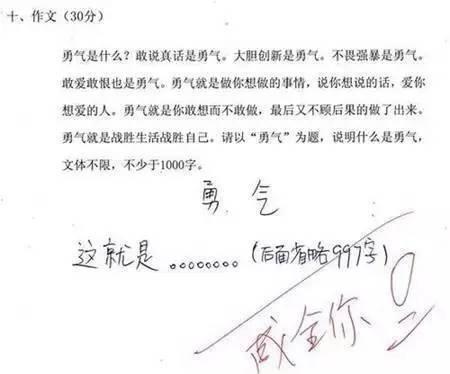 十、作文（30分）
勇气是什么？敢说真话是勇气。大胆创新是勇气。不畏强暴是勇气。
敢爱敢恨也是勇气。勇气就是做你想做的事情，说你想说的话，爱你
想爱的人。勇气就是你敢想而不敢做，最后又不顾后果的做了出来。
勇气就是战胜生活战胜自己。请以“勇气”为题，说明什么是勇气，
文体不限，不少于1000字。
勇 气
这就是。。。。。。。。(后面省略997字)
成全你 0